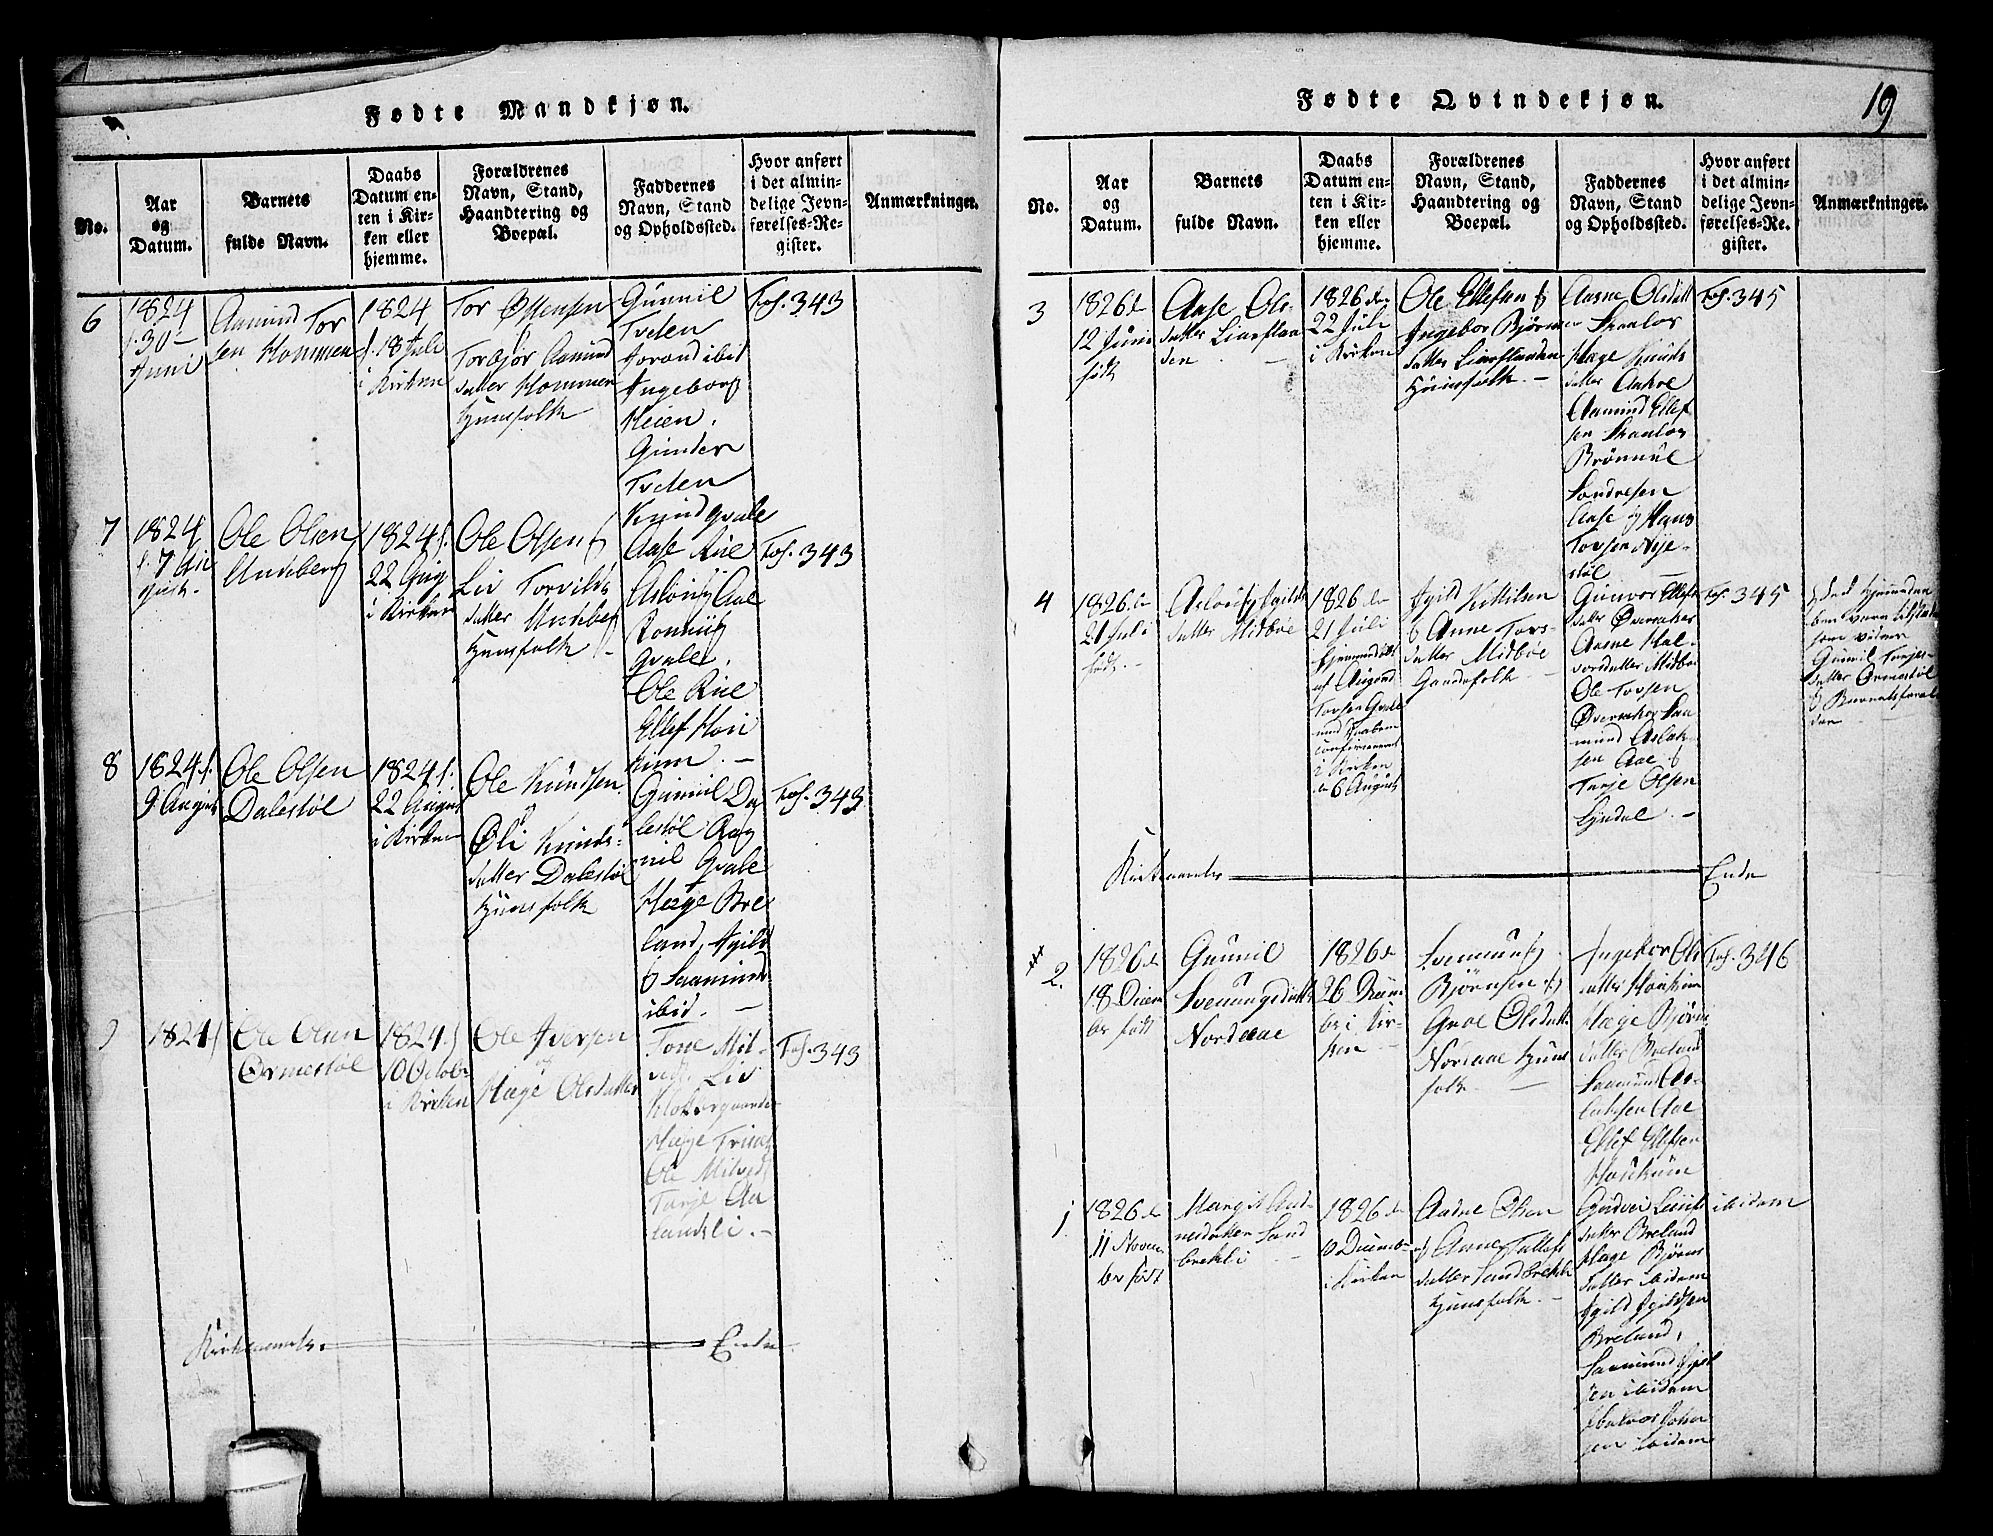 Fødte Mandkjøn.
No.
Aar
og
Datum.
Barnets
fulde Navn.
Daabs
Datum en-
ten i Kir-
ken eller
hjemme.
Forældrenes
Navn, Stand,
Haandtering og
Boepæl.
Faddernes
Navn, Stand
og Opholdssted.
Hvor anført
i det almin-
delige Jevn-
førelses-Re-
gister.
Anmærkninger.
6
1824
30
Juni
Aamund Tor
sen Hommen
1824
18 Juli
i Kirken
Tor Østensen
Torbjør Aamund
datter Hommen
Huusfolk
Gunnil
Tveten
Jorand ibid
Ingeborg
Kleien.
Gunder
Tveten
Knud Qvale
Fol. 343
7
1824
d. 7 Au
gust.
Ole Olsen
Undeberg
1824 d.
22 Aug
i Kirken
Ole Olsen
Liv Torvilds
datter Undeberg
Huusfolk
Aase Rue
Aslaug Aae
Ronnug
Qvale.
Ole Rue
Ellef Hon
kium.
Fol. 343
8
1824 d.
9 August
Ole Olsen
Dalestøl
1824 d.
22 August
i Kirken
Ole Knudsen
Øli Knuds-
datter Dalestøl
Huusfolk
Gunnil Da
lestøl Rag
nil Qvale
Hæge Bre
land, Igild
& Saamund
ibid.
Fol. 343
9
1824
Ole Olsen
Ormestøl
1824
10 Octobr
i Kirken
Ole Iversen
og
Hæge Olsdatter
Tone Mit-
Liv
Klokkergaarden
Hæge
Ole
Tarje
Fol. 343
Kirkeaarets Ende.
Fødte Qvindekjøn.
19
No.
Aar
og
Datum.
Barnets
fulde Navn.
Daabs
Datum en-
ten i Kir-
ken eller
hjemme.
Forældrenes
Navn, Stand,
Haandtering og
Boepæl.
Faddernes
Navn, Stand
og Opholdssted.
Hvor anført
i det almin-
delige Jevn-
førelses-Re-
gister.
Anmærkninger.
3
1826 d.
12 Juni
født
Aase Ols-
datter Liarflaa
den
1826 den
22 Juli
i Kirken
Ole Ellefsen &
Ingebor Bjørn
datter Liarflaaden
Huusfolk.
Aasne Olsdatt
Skaalos
Hæge Knuds
datter
Aamund Ellef
sen Skaalos
Brønnul
Sondresen
Aase & Hans
Torsen Nye-
støl
Fol. 345
4
1826 den
21 Juli
født.
Aslaug Igilds
datter Midbøe
1826 den
21 Juli
hjemmedøbt
af Augund
Torsen Qvale
confirmeret
i Kirken
d. 6 August
Igild Kittilsen
& Anne Tors-
datter Midbøe
Gaardefolk
Gunvor Ellefs
datter Øveraaker
Aasne Hal-
vorsdatter Midbøe
Ole Torsen
Øveraaker Saa
mund Aslak
sen Aae &
Tarje Olsen
Lyndal.
Fol. 345
Ved Hjemmedaa
ben være tilstæde
som vidner
Gunnil Tarjes-
datter Ormestøl
& Barnets foræl
dre
Kirkeaarets Ende
2.
1826 d.
18 Decem
ber født
Gunnil
Svenungsdatter
Nordaae
1826 d.
26 Decem
ber i Kir-
ken
Svenung
Bjørnsen &
Groe Olsdatt
Nordaae Huus
folk.
Ingebor Ols
datter Honkim
Hæge Bjørns
datter Breland
Saamund As-
laksen Aae
Ellef Ellefsen
Honkium
Fol. 346
1
1826 d.
11 Novem
ber født
Margit Aad-
nesdatter Sand
brekli
1826 d.
10 Decembr
i Kirken
Aadne Olsen
& Anne Tallefs
datter Sandbrekk
Huusfolk.
datter Breland
Hæge Bjørns
datter ibidem
Igild Igildsen
Breland,
Saamund Igild
sen ibidem
Halvor Johan
sen ibidem
ibidem